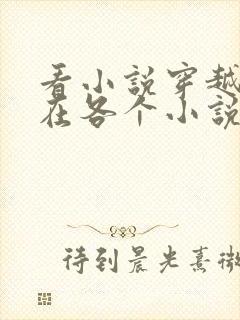 看小说穿越
在各个小说
待到晨光熹微